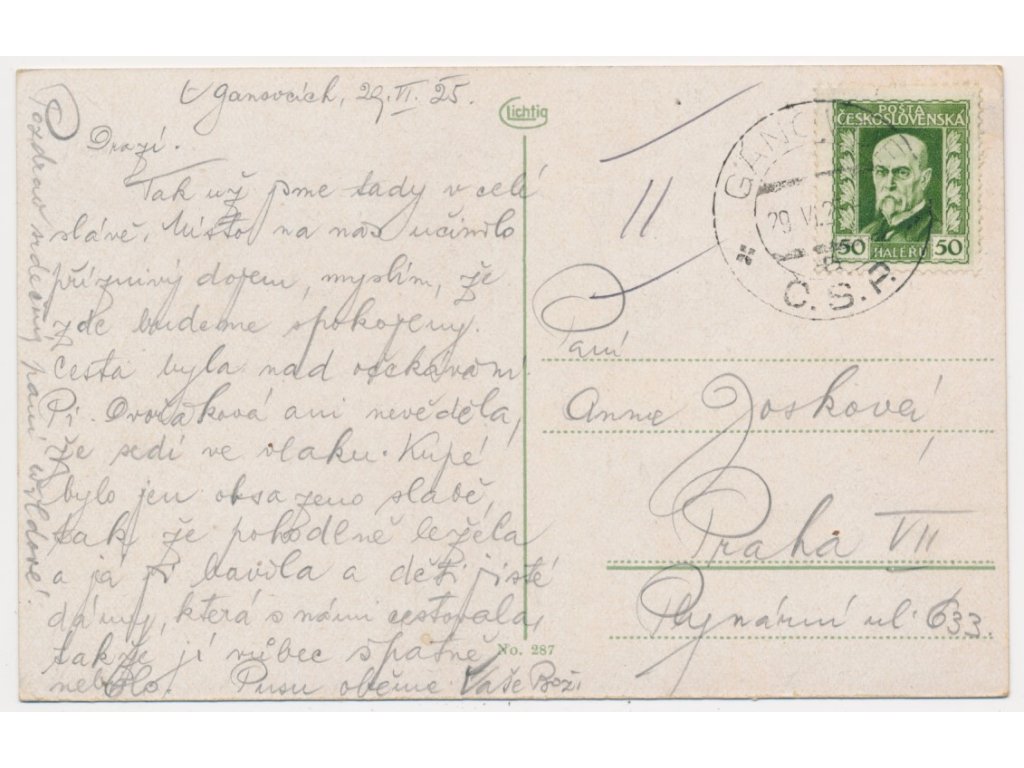 V Ganovcích, 29. VI. 25.
Drazí.
Tak už jsme tady v celé
slávě. Místo na nás učinilo
příznivý dojem, myslím, že
zde budeme spokojeny.
Cesta byla nad očekávání
Pí. Dvořáková ani nevěděla,
že sedí ve vlaku. Kupé
bylo jen obsazeno slabě,
tak že pohodlně ležela
a já si bavila a děti jisté
dámy, která s námi cestovala,
takže jí vůbec špatně
nebylo. Pusu oběma Vaše
Pozdrav srdečný paní
Lichtig
No. 287
POŠTA
ČESKOSLOVENSKÁ
50 HALÉŘŮ 50
GÁNOVCE
29 VI 2
Č.S.P.
11
Paní
Anna Josková
Praha VII
Plynární ul. 633.